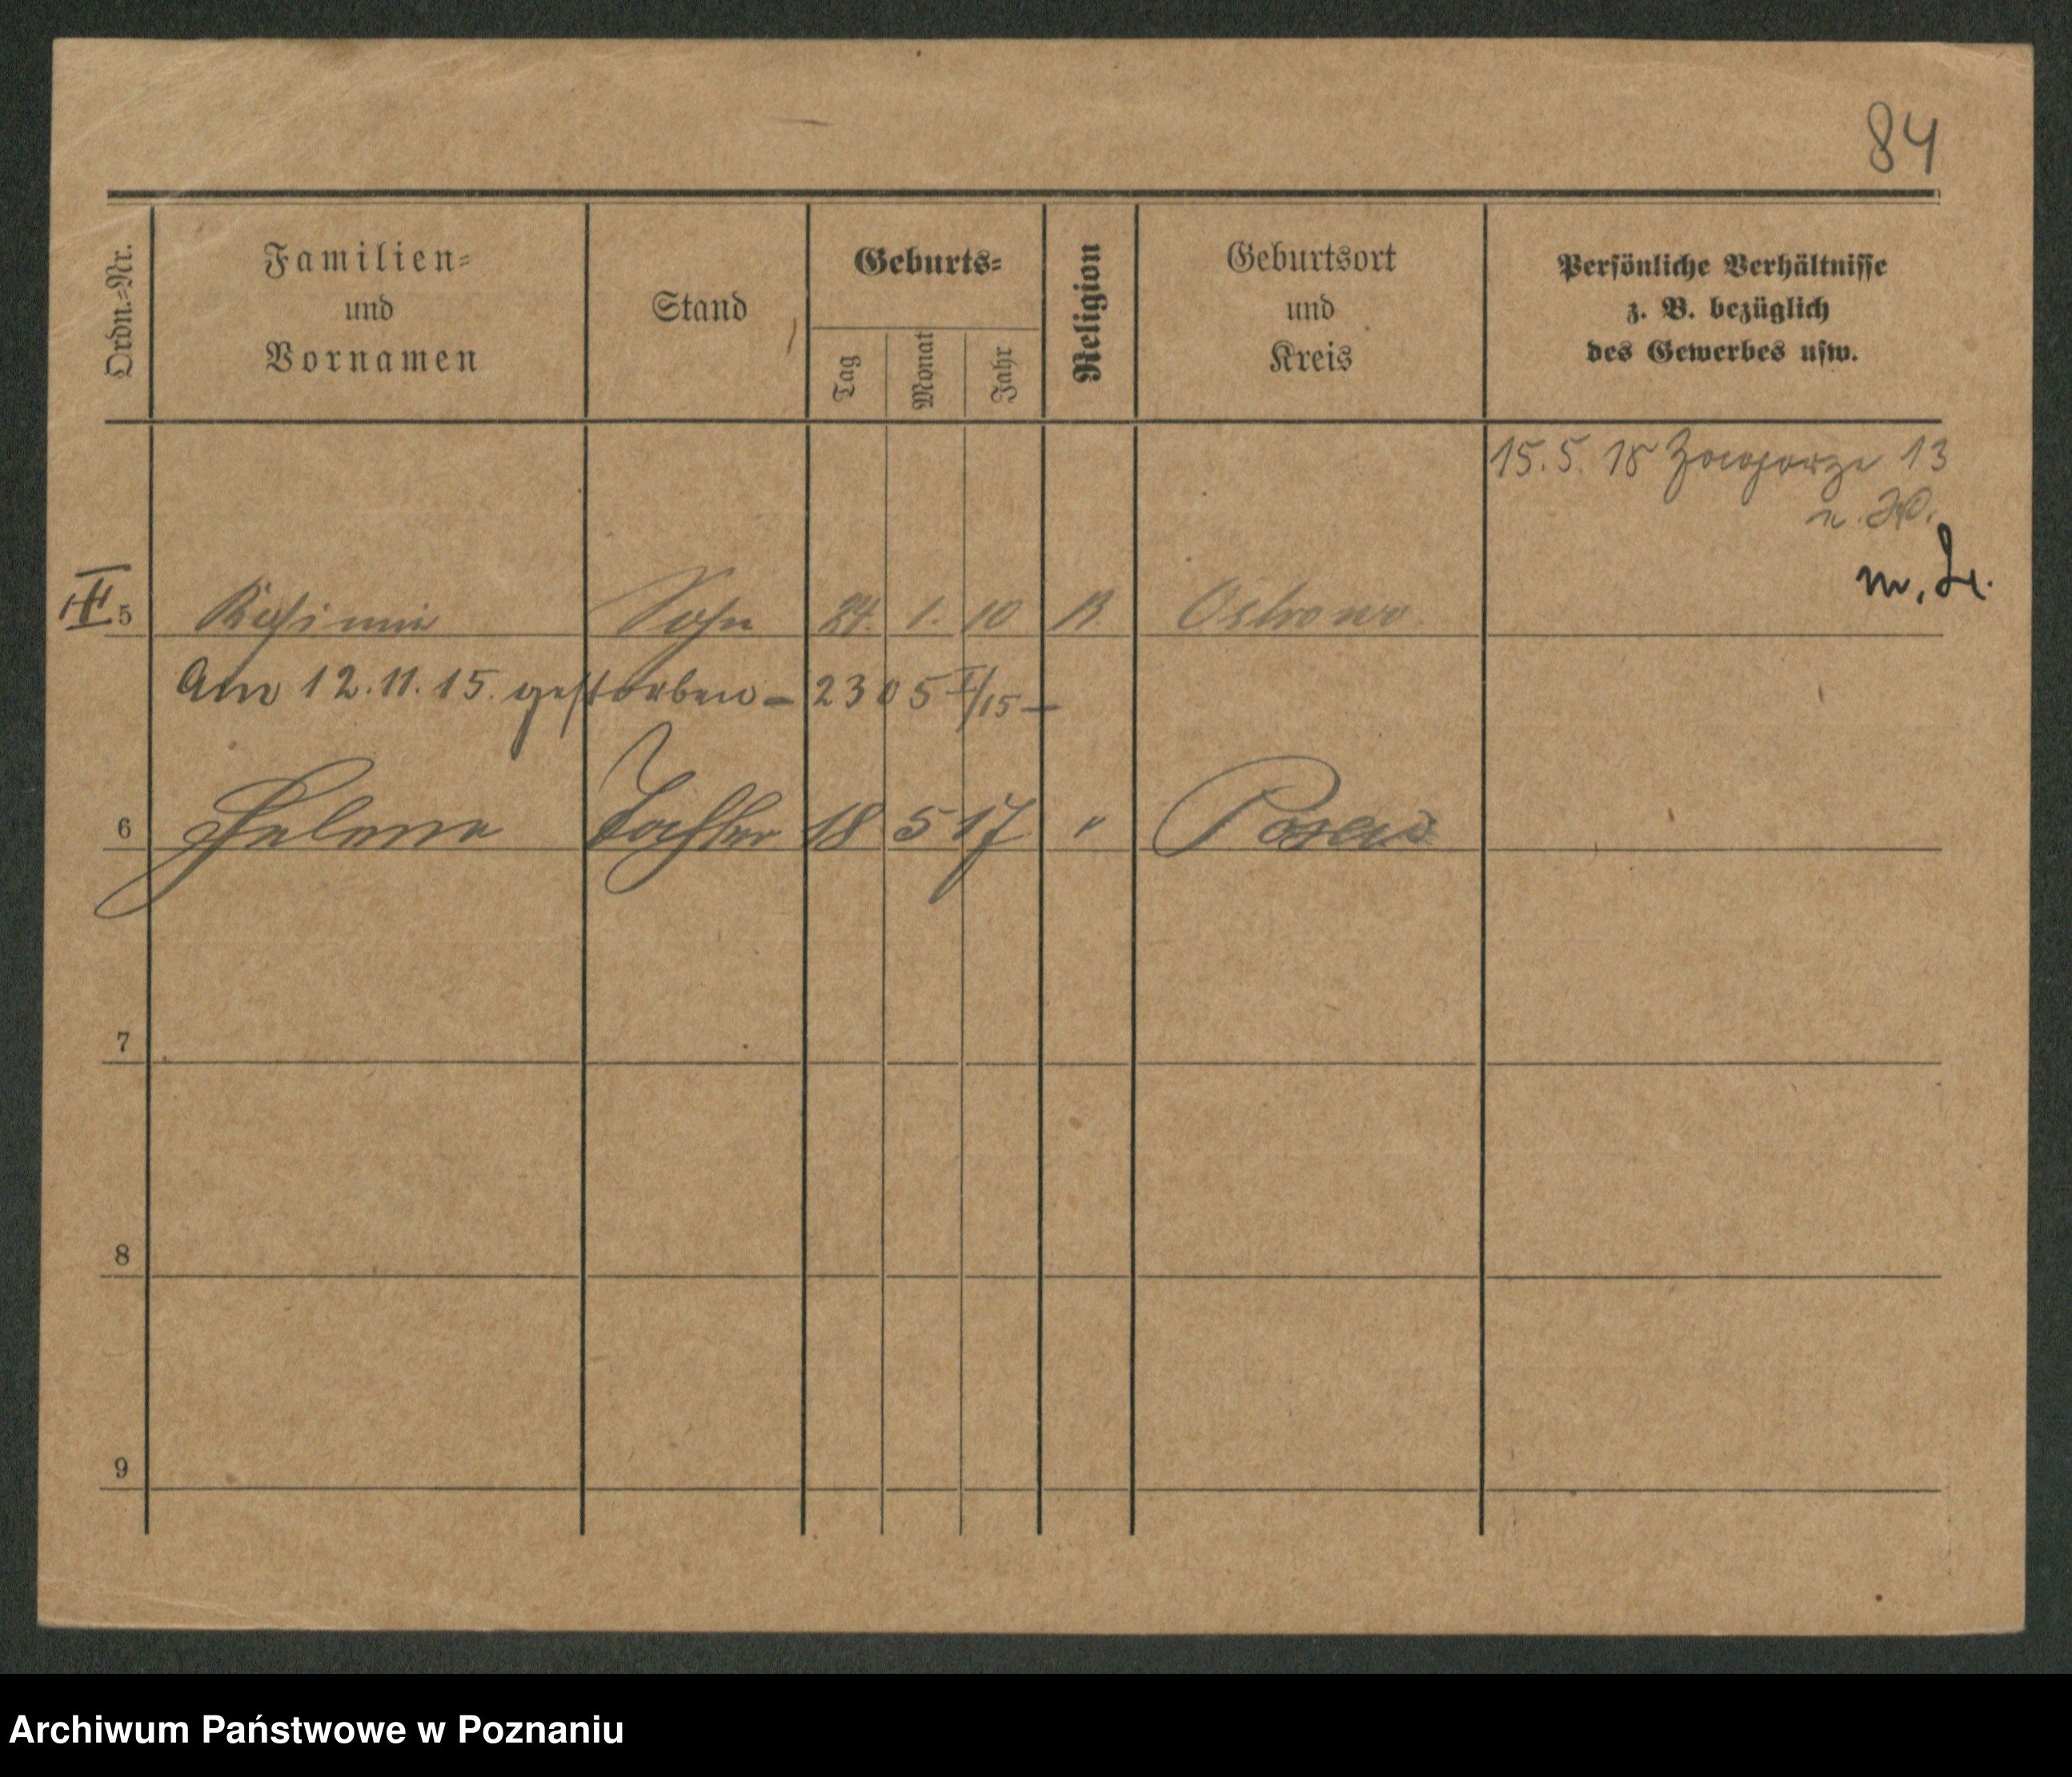 84
Ordn.=Nr.
Familien=
und
Vornamen
Stand
Geburts=
Tag
Monat
Jahr
Religion
Geburtsort
und
Kreis
Persönliche Verhältnisse
z. B. bezüglich
des Gewerbes usw.
15. 5. 18 13
m.
5 Sohn 24. 1. 10 Ostrowo
Am 12.11.15. gestorben - 2305 /15 -
6 Helena Tochter 18 5 17 " Posen
7
8
9
Archiwum Państwowe w Poznaniu